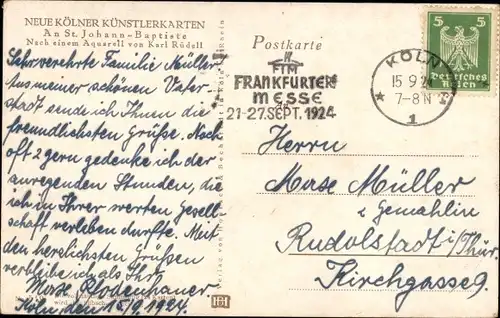 NEUE KÖLNER KÜNSTLERKARTEN
An St. Johann-Baptiste
Nach einem Aquarell von Karl Rüdell
Sehr verehrte Familie Müller,
Aus meiner schönen Vater-
stadt sende ich Ihnen die
freundlichsten Grüße. Noch
oft & gern gedenke ich der
anregenden Stunden, die
ich in Ihrer werten Gesell-
schaft verleben durfte. Mit
den herzlichsten Grüßen
verbleibe ich als Ihr
Köln, den 15/9. 1924.
Verlag von
HB
Postkarte
FRANKFURTER
MESSE
21-27.SEPT. 1924
KÖLN
15 9 2
7-8N
1
5 5
Deutsches
Reich
Herrn
Müller
& Gemahlin
Rudolstadt i/Thür.
Kirchgasse 9.